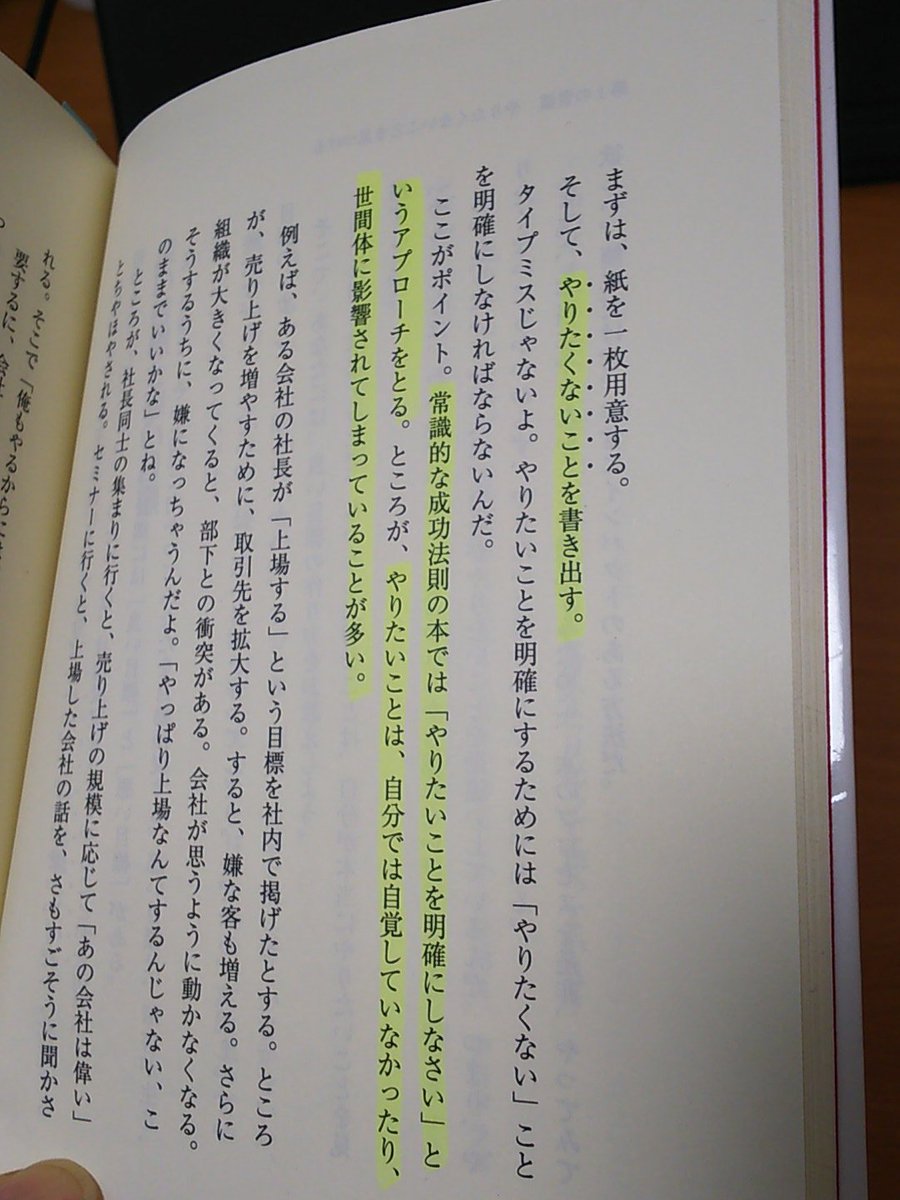 まずは、紙を一枚用意する。
そして、やりたくないことを書き出す。
タイプミスじゃないよ。やりたいことを明確にするためには「やりたくない」こと
を明確にしなければならないんだ。
ここがポイント。常識的な成功法則の本では「やりたいことを明確にしなさい」と
いうアプローチをとる。ところが、やりたいことは、自分では自覚していなかったり、
世間体に影響されてしまっていることが多い。
例えば、ある会社の社長が「上場する」という目標を社内で掲げたとする。ところ
が、売り上げを増やすために、取引先を拡大する。すると、嫌な客も増える。さらに
組織が大きくなってくると、部下との衝突がある。会社が思うように動かなくなる。
そうするうちに、嫌になっちゃうんだよ。「やっぱり上場なんてするんじゃない、こ
のままでいいかな」とね。
ところが、社長同士の集まりに行くと、売り上げの規模に応じて「あの会社は偉い」
とちやほやされる。セミナーに行くと、上場した会社の話を、さもすごそうに聞かさ
れる。そこで「俺もやるからには
要するに、会社